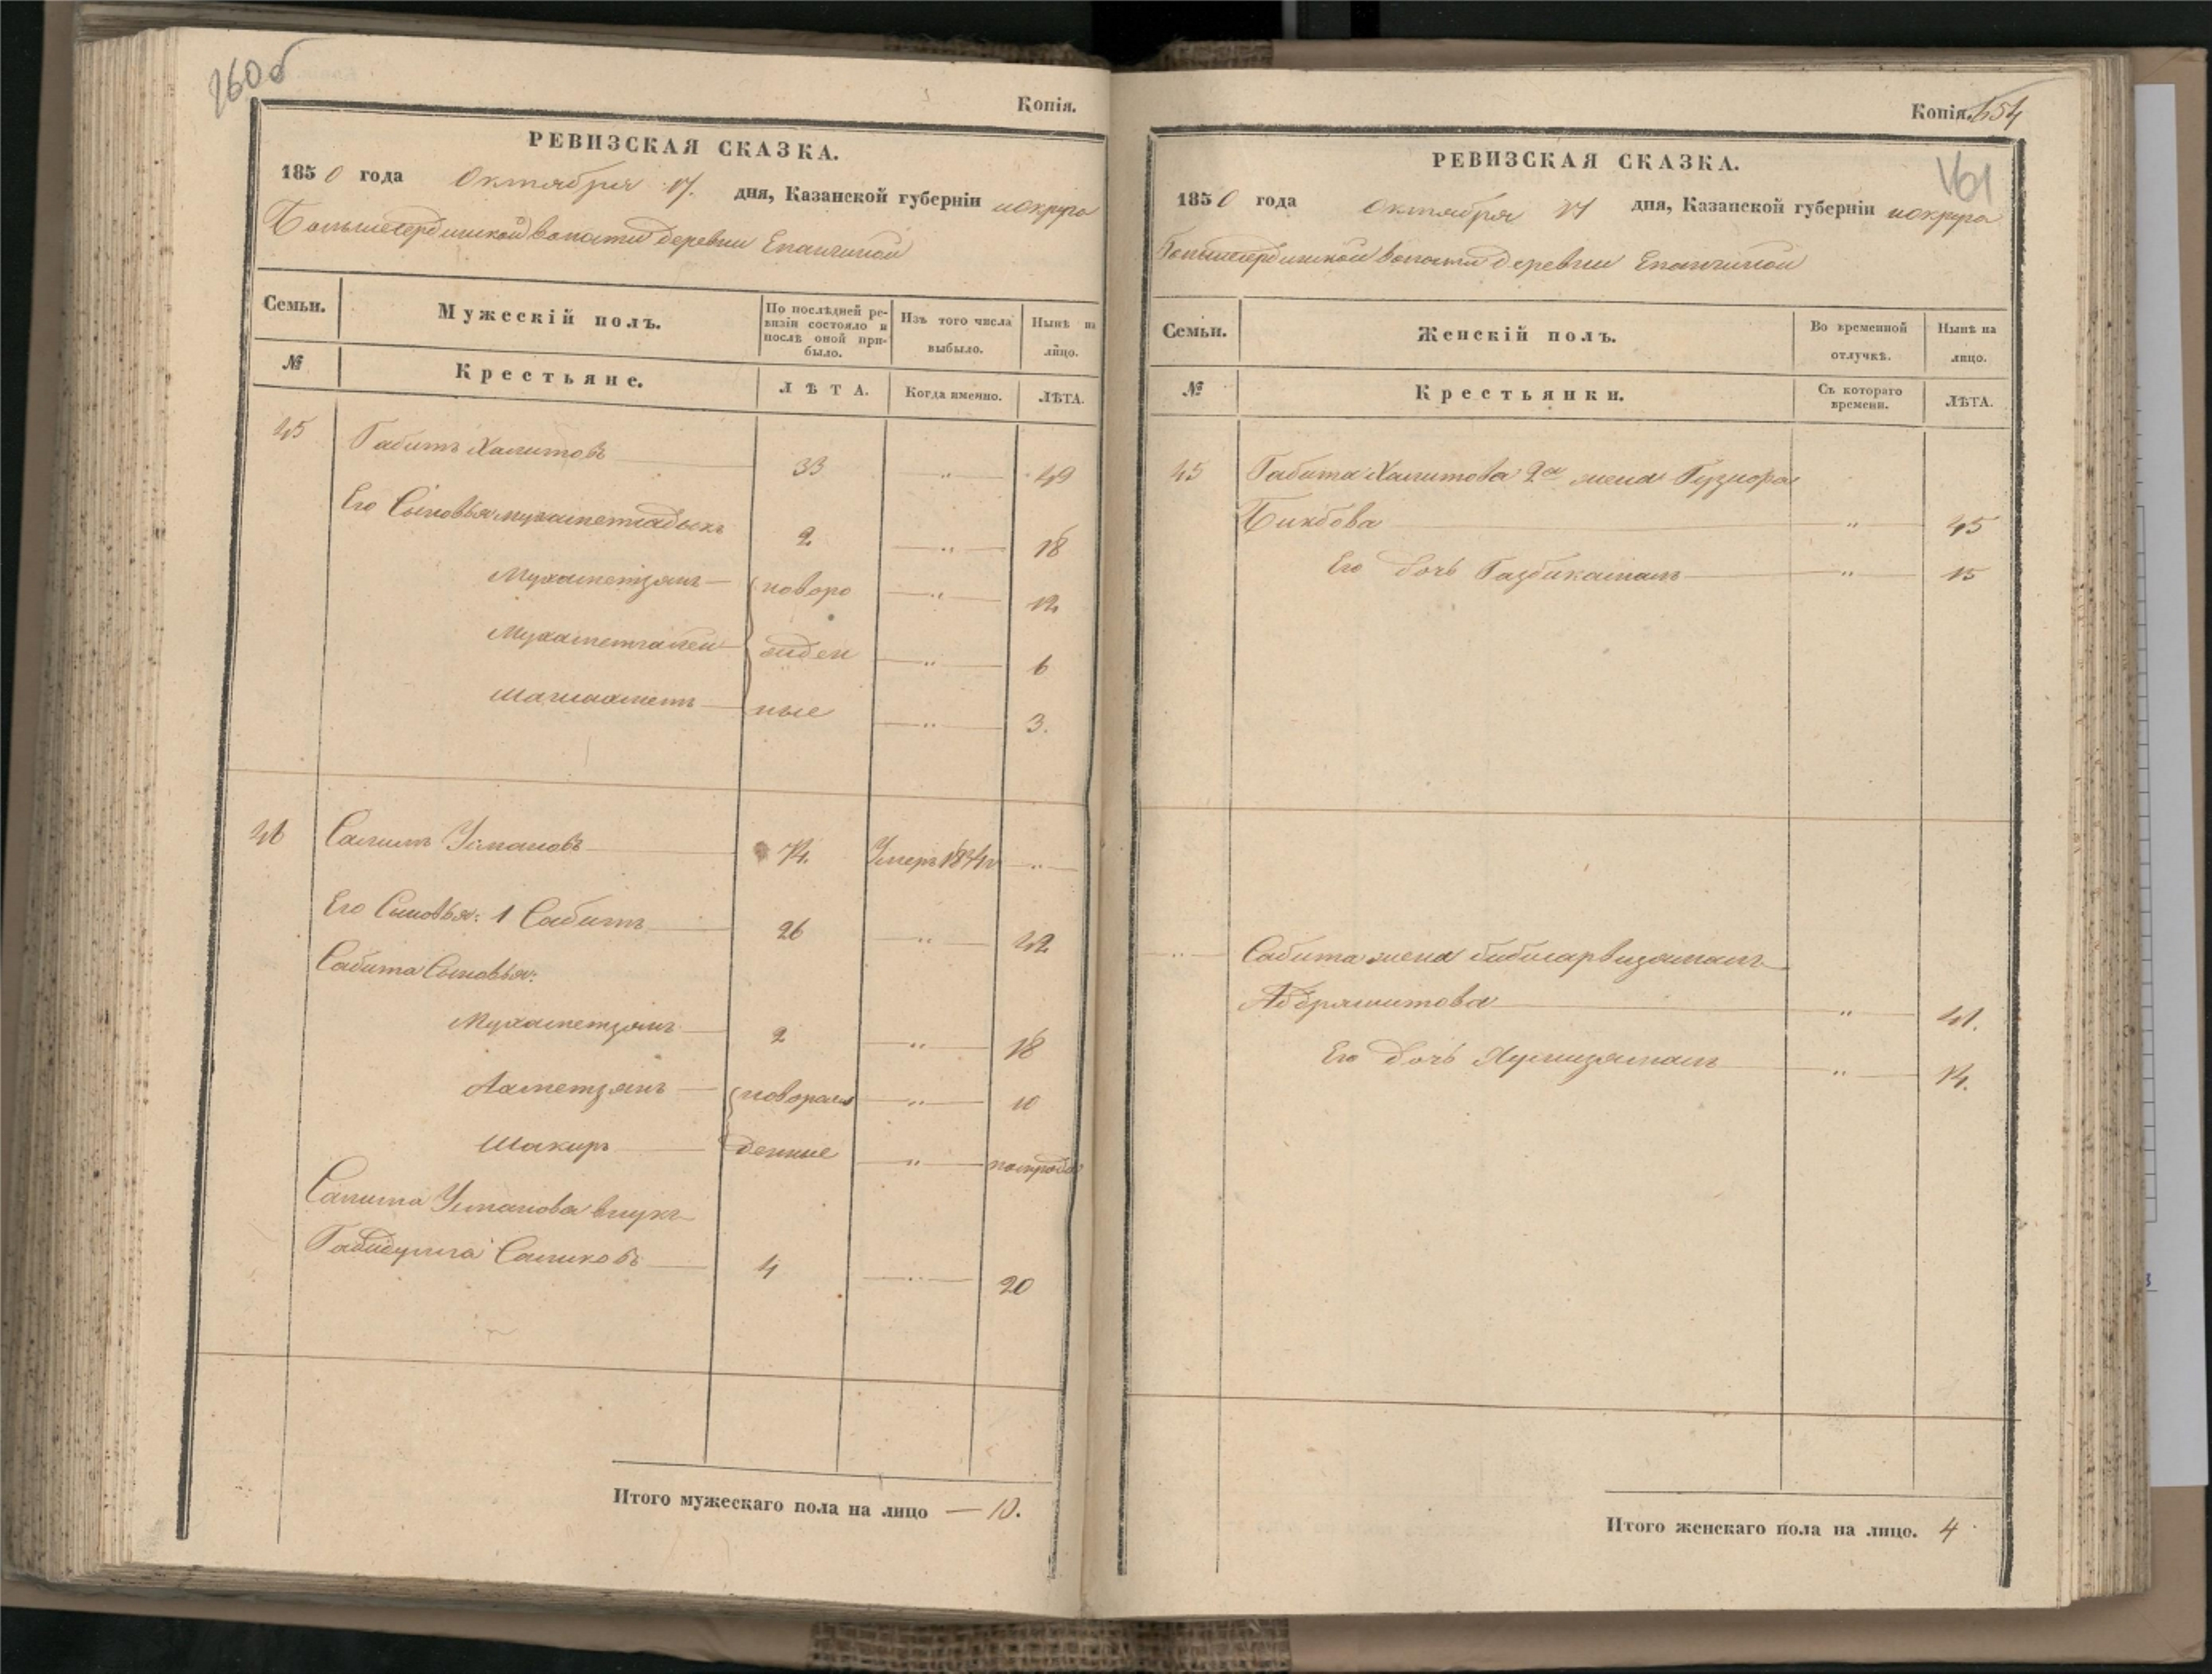 160об
Копія.
РЕВИЗСКАЯ СКАЗКА.
1850 года Октября 17. дня, Казанской губерніи и округа
Большесердинской волости деревни Епанчиной
Семьи.
Мужескій полъ.
По послѣдней ре-
визіи состояло и
послѣ оной при-
было.
Изъ того числа
выбыло.
Нынѣ на
лицо.
№
Крестьяне.
ЛѢТА.
Когда именно.
ЛѢТА.
45 Габитъ Халитовъ 33 " 49
Его Сыновья Мухаметсадыкъ 2 " 18
Мухаметзянъ новоро " 12
Мухаметгалей жден " 6
Шагиахметъ ные " 3.
46 Салимъ Усмановъ 74. Умеръ "
Его Сыновья: 1 Сабитъ 26 " 42
Сабита Сыновья:
Мухаметзянъ 2 " 18
Ахметзянъ новорож " 10
Шакиръ денные " полгода
Салима Усманова внукъ
Габидулла Салиховъ 4 " 20
Итого мужескаго пола на лицо — 10.
Копія. 454
161
РЕВИЗСКАЯ СКАЗКА.
1850 года Октября 17 дня, Казанской губерніи и округа
Большесердинской волости деревни Епанчиной
Семьи.
Женскій полъ.
Во временной
отлучкѣ.
Нынѣ на
лицо.
№
Крестьянки.
Съ котораго
времени.
ЛѢТА.
45 Габита Халитова 2я жена Гузнора
Бикбова " 45
Его дочь Газбикамал " 15
" Сабита жена Бибисарвизямалъ
Абдряшитова " 41.
Его дочь " 14.
Итого женскаго пола на лицо. 4